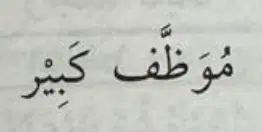 مُوَظَّف كَبِيْر